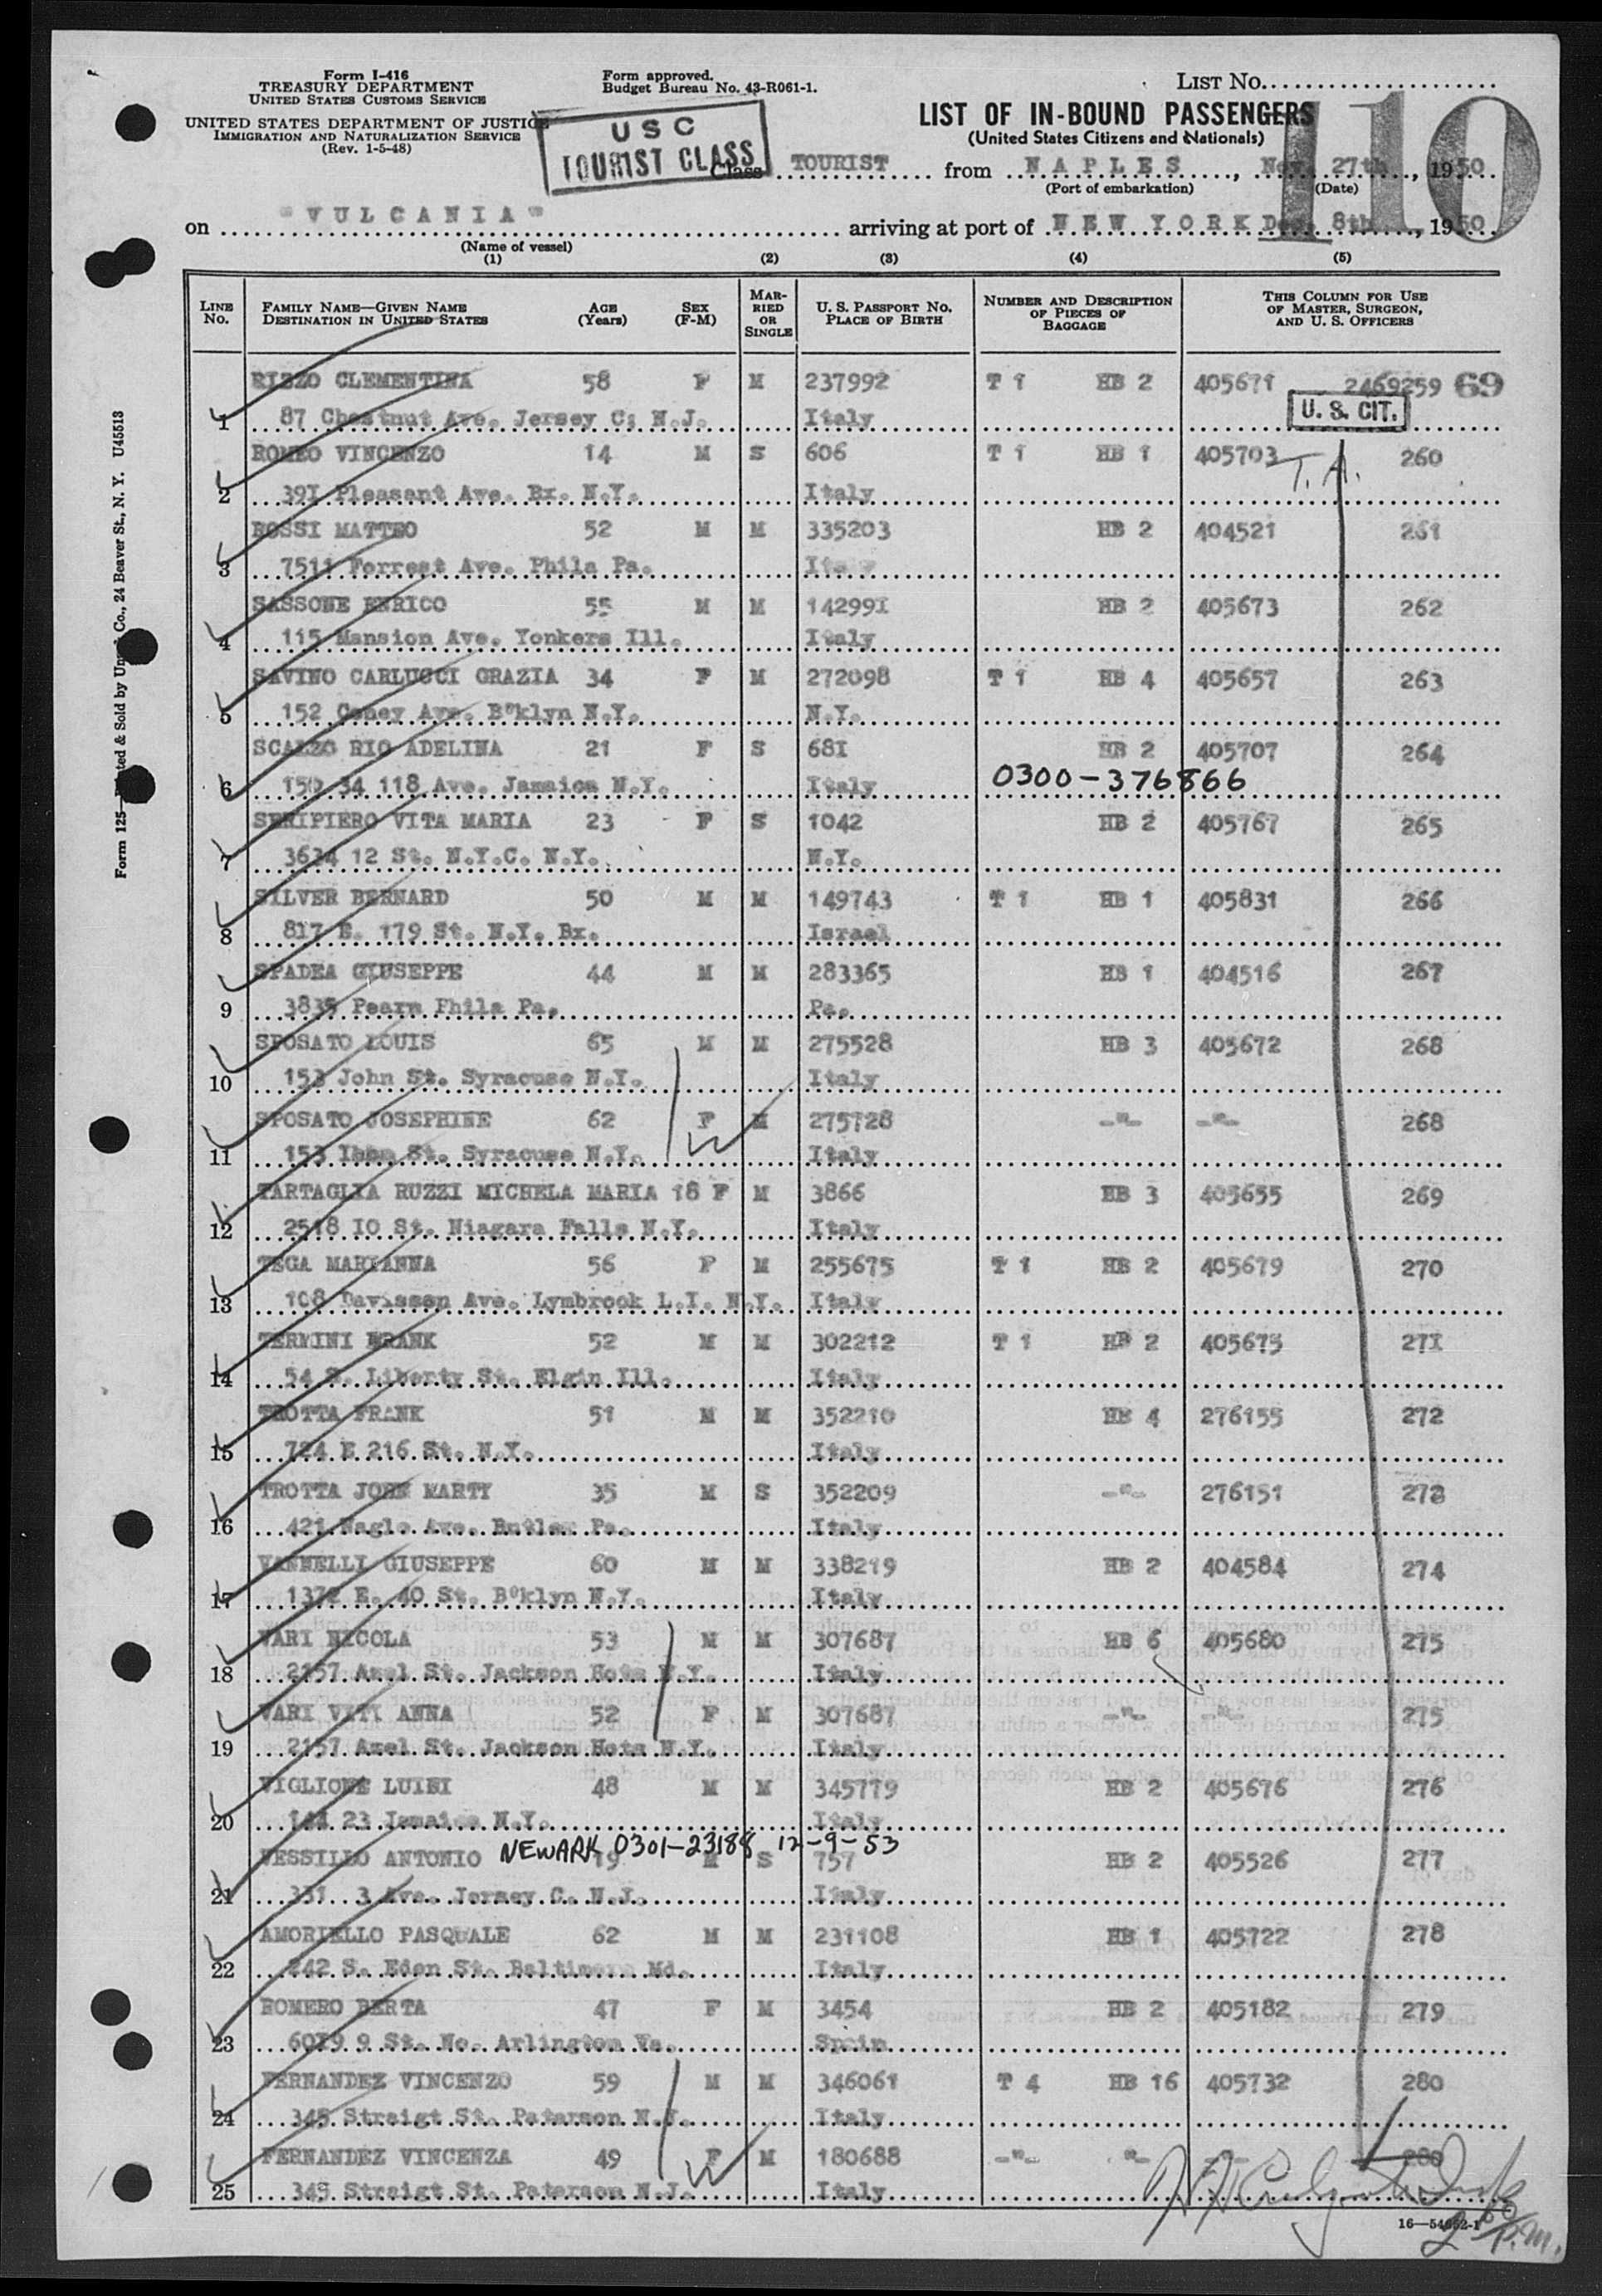 Form I-416
TREASURY DEPARTMENT
UNITED STATES CUSTOMS SERVICE
UNITED STATES DEPARTMENT OF JUSTICE
IMMIGRATION AND NATURALIZATION SERVICE
(Rev. 1-5-48)
Form approved.
Budget Bureau No. 43-R061-1.
USC
TOURIST CLASS
LIST No.
110
LIST OF IN-BOUND PASSENGERS
(United States Citizens and Nationals)
Class TOURIST from NAPLES, Nov. 27th, 1950
(Port of embarkation) (Date)
on "VULCANIA" arriving at port of NEW YORK Dec. 8th, 1950
(Name of vessel)
(1) (2) (3) (4) (5)
LINE No. FAMILY NAME—GIVEN NAME DESTINATION IN UNITED STATES AGE (Years) SEX (F-M) MARRIED OR SINGLE U. S. PASSPORT No. PLACE OF BIRTH NUMBER AND DESCRIPTION OF PIECES OF BAGGAGE THIS COLUMN FOR USE OF MASTER, SURGEON, AND U. S. OFFICERS
RIZZO CLEMENTINA 58 F M 237992 T 1 HB 2 405671 2469259 69
U. S. CIT.
1 87 Chestnut Ave. Jersey C; N.J. Italy
ROMEO VINCENZO 14 M S 606 T 1 HB 1 405703 T.A. 260
2 391 Pleasant Ave. Bx. N.Y. Italy
ROSSI MATTEO 52 M M 335203 HB 2 404521 261
3 7511 Forrest Ave. Phila Pa. Italy
SASSONE ENRICO 55 M M 14299I HB 2 405673 262
4 115 Mansion Ave. Yonkers Ill. Italy
SAVINO CARLUCCI GRAZIA 34 F M 272098 T 1 HB 4 405657 263
5 152 Coney Ave. B°klyn N.Y. N.Y.
SCALZO RIO ADELINA 21 F S 68I HB 2 405707 264
0300-376866
6 150 34 118 Ave. Jamaica N.Y. Italy
SERIPIERO VITA MARIA 23 F S 1042 HB 2 405767 265
7 3634 12 St. N.Y.C. N.Y. N.Y.
SILVER BERNARD 50 M M 149743 T 1 HB 1 405831 266
8 817 E. 179 St. N.Y. Bx. Israel
SPADEA GIUSEPPE 44 M M 283365 HB 1 404516 267
9 3835 Pearm Phila Pa. Pa.
SPOSATO LOUIS 65 M M 275528 HB 3 405672 268
10 153 John St. Syracuse N.Y. Italy
SPOSATO JOSEPHINE 62 F M 275728 -"- -"- 268
W
11 153 St. Syracuse N.Y. Italy
TARTAGLIA RUZZI MICHELA MARIA 18 F M 3866 HB 3 405655 269
12 2518 IO St. Niagara Falls N.Y. Italy
TEGA MARIANNA 56 F M 255675 T 1 HB 2 405679 270
13 108 Davisson Ave. Lymbrook L.I. N.Y. Italy
TERMINI FRANK 52 M M 302212 T 1 HB 2 405675 27I
14 54 S. Liberty St. Elgin Ill. Italy
TROTTA FRANK 51 M M 352210 HB 4 276155 272
15 724 E 216 St. N.Y. Italy
TROTTA JOHN MARTY 35 M S 352209 -"- 276151 273
16 421 Nagle Ave. Butler Pa. Italy
VANNELLI GIUSEPPE 60 M M 338219 HB 2 404584 274
17 1372 E. 40 St. B°klyn N.Y. Italy
VARI NICOLA 53 M M 307687 HB 6 405680 275
18 2157 Amel St. Jackson Hots N.Y. Italy
VARI VITI ANNA 52 F M 307687 -"- -"- 275
19 2157 Amel St. Jackson Hots N.Y. Italy
VIGLIONE LUIGI 48 M M 345779 HB 2 405676 276
20 144 23 Jamaica N.Y. Italy
NEWARK 0301-23188 12-9-53
VESSILLO ANTONIO 19 M S 757 HB 2 405526 277
21 331 3 Ave. Jersey C. N.J. Italy
AMORIELLO PASQUALE 62 M M 231108 HB 1 405722 278
22 242 S. Eden St. Baltimore Md. Italy
ROMERO BERTA 47 F M 3454 HB 2 405182 279
23 6019 9 St. No. Arlington Va. Spain
FERNANDEZ VINCENZO 59 M M 346061 T 4 HB 16 405732 280
24 345 Streigt St. Paterson N.J. Italy
FERNANDEZ VINCENZA 49 F M 180688 -"- "- 280
W
25 345 Streigt St. Paterson N.J. Italy
16—54662-1
2 P.M.
Form 125—Printed & Sold by Co., 24 Beaver St., N. Y. U45513